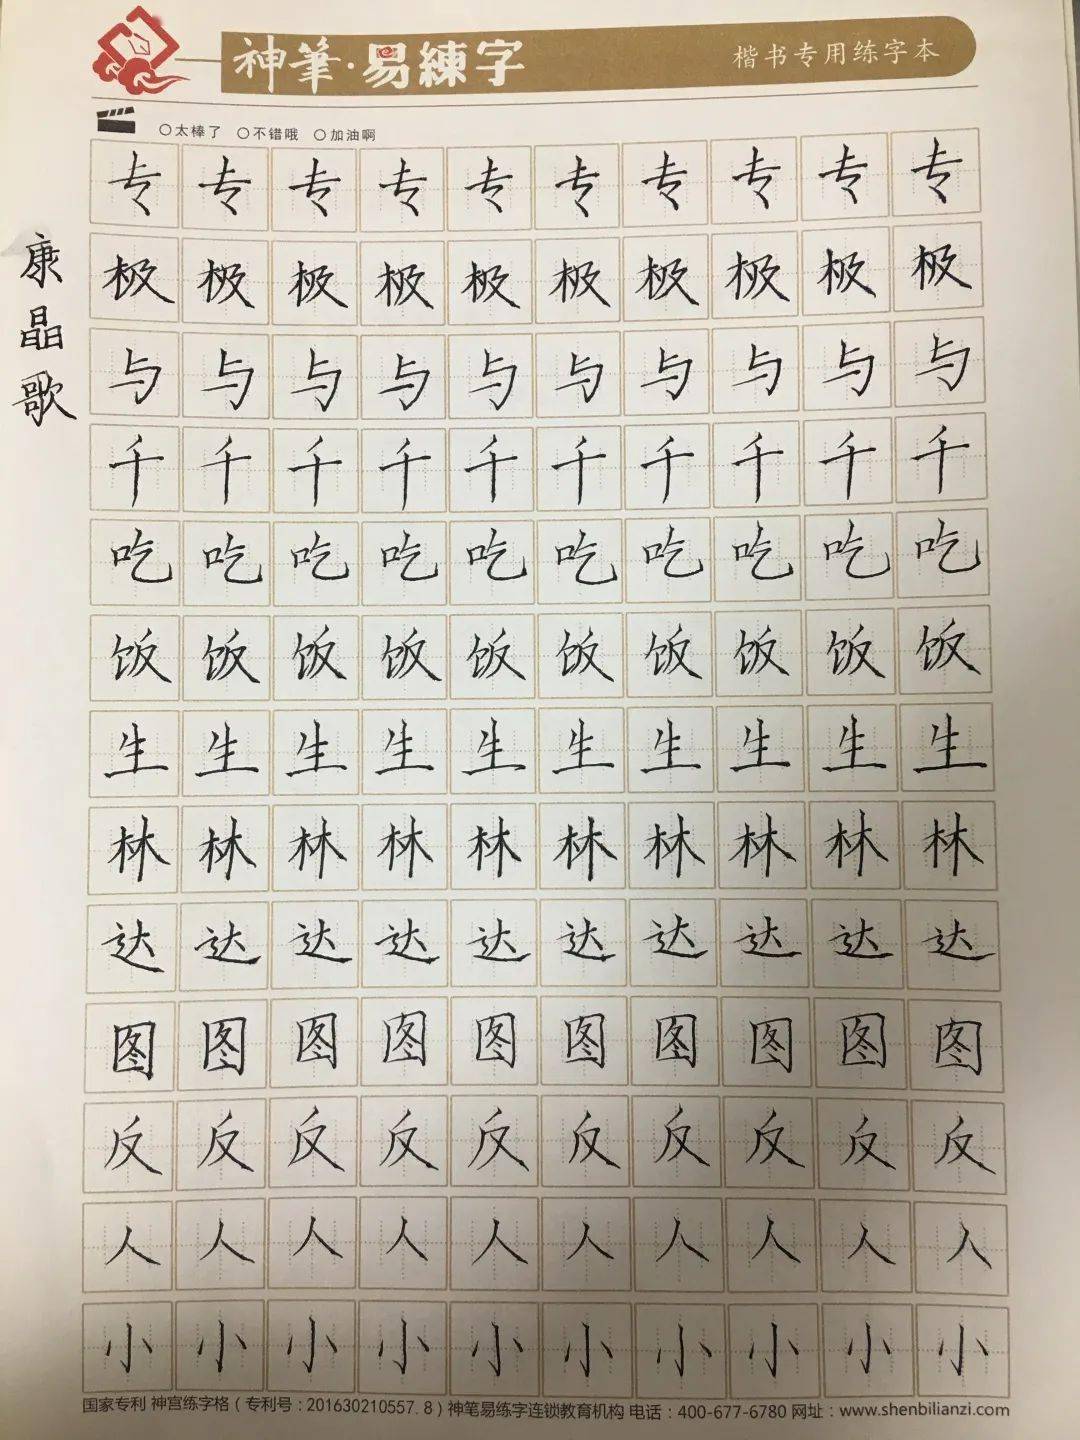 神筆·易練字
楷书专用练字本
○太棒了 ○不错哦 ○加油啊
康晶歌
专专专专专专专专专专
极极极极极极极极极极
与与与与与与与与与与
千千千千千千千千千千
吃吃吃吃吃吃吃吃吃吃
饭饭饭饭饭饭饭饭饭饭
生生生生生生生生生生
林林林林林林林林林林
达达达达达达达达达达
图图图图图图图图图图
反反反反反反反反反反
人人人人人人人人人人
小小小小小小小小小小
国家专利 神宫练字格（专利号：201630210557.8）神笔易练字连锁教育机构 电话：400-677-6780 网址：www.shenbilianzi.com